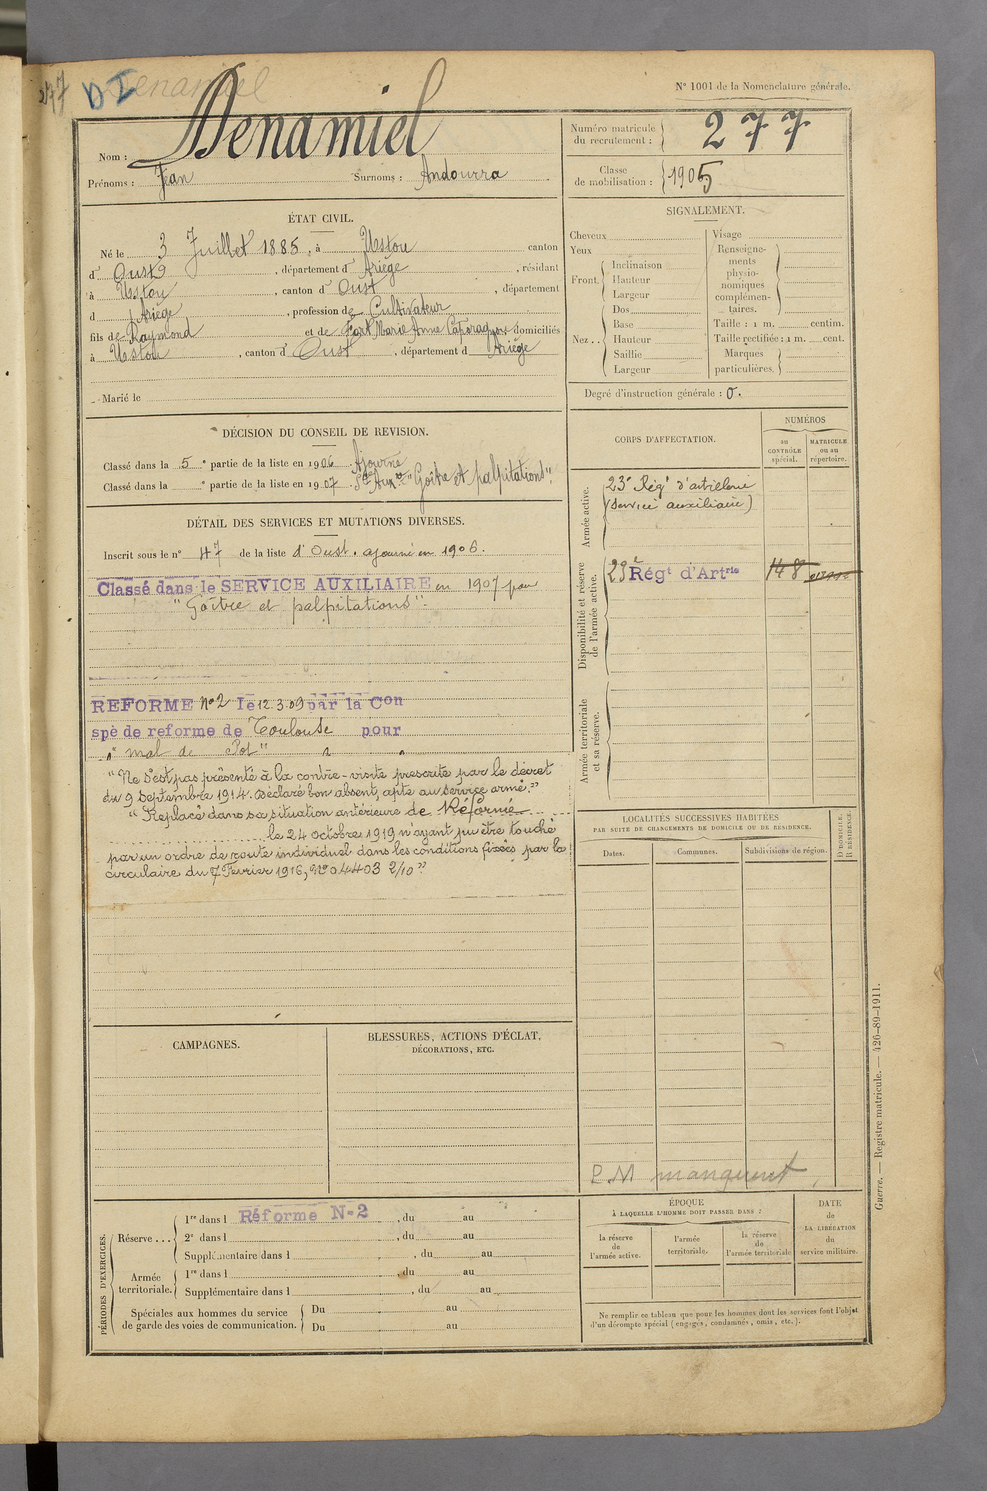 277 DI Denamiel
N° 1001 de la Nomenclature générale.
Nom : Denamiel
Prénoms : Jean Surnoms : Andourra
Numéro matricule du recrutement : 277
Classe de mobilisation : 1905
ÉTAT CIVIL.
Né le 3 Juillet 1885, à Ustou canton
d' Oust, département d' Ariège, résidant
à Ustou, canton d' Oust, département
d' Ariège, profession de Cultivateur
fils de Raymond et de Fort Marie Anne domiciliés
à Ustou, canton d' Oust, département d Ariège
Marié le
SIGNALEMENT.
Cheveux
Yeux
Front. Inclinaison
Hauteur
Largeur
Nez . . Dos
Base
Hauteur
Saillie
Largeur
Visage
Renseigne-
ments
physio-
nomiques
complémen-
taires.
Taille : 1 m. centim.
Taille rectifiée : 1 m. cent.
Marques
particulières.
Degré d'instruction générale : 0.
DÉCISION DU CONSEIL DE REVISION.
Classé dans la 5e partie de la liste en 1906 Ajourné
Classé dans la e partie de la liste en 1907. Sce Auxre "Goître et palpitations".
DÉTAIL DES SERVICES ET MUTATIONS DIVERSES.
Inscrit sous le n° 47 de la liste d' Oust. ajourné en 1906.
Classé dans le SERVICE AUXILIAIRE en 1907 pour
"Goitre et palpitations".
REFORME N°2 le 12.3.09 par la Con
spè de reforme de Toulouse pour
"mal de Pot"
"Ne s'est pas présenté à la contre-visite prescrite par le décret
du 9 Septembre 1914. Déclaré bon absent, apte au service armé."
"Replacé dans sa situation antérieure de Réformé
le 24 octobre 1919 n'ayant pu être touché
par un ordre de route individuel dans les conditions fixées par la
circulaire du 7 Février 1916, N° 04403 2/10"
CORPS D'AFFECTATION.
NUMÉROS
au CONTRÔLE spécial.
MATRICULE ou au répertoire.
Armée active.
23e Régt d'artillerie
(service auxiliaire)
Disponibilité et réserve de l'armée active.
23 Régt d'Artrie 148
Armée territoriale et sa réserve.
LOCALITÉS SUCCESSIVES HABITÉES
PAR SUITE DE CHANGEMENTS DE DOMICILE OU DE RÉSIDENCE.
Dates.
Communes.
Subdivisions de région.
D. DOMICILE.
R. RÉSIDENCE.
P.M manquent
CAMPAGNES.
BLESSURES, ACTIONS D'ÉCLAT,
DÉCORATIONS, ETC.
PÉRIODES D'EXERCICES.
Réserve . . . 1re dans l Réforme N-2, du au
2e dans l , du au
Supplémentaire dans l , du au
Armée territoriale. 1re dans l , du au
Supplémentaire dans l , du au
Spéciales aux hommes du service
de garde des voies de communication. Du au
Du au
ÉPOQUE
À LAQUELLE L'HOMME DOIT PASSER DANS :
la réserve de l'armée active.
l'armée territoriale.
la réserve de l'armée territoriale
DATE de LA LIBÉRATION du service militaire.
Ne remplir ce tableau que pour les hommes dont les services font l'objet
d'un décompte spécial (engagés, condamnés, omis, etc.).
Guerre. — Registre matricule. — 426-89-1911.